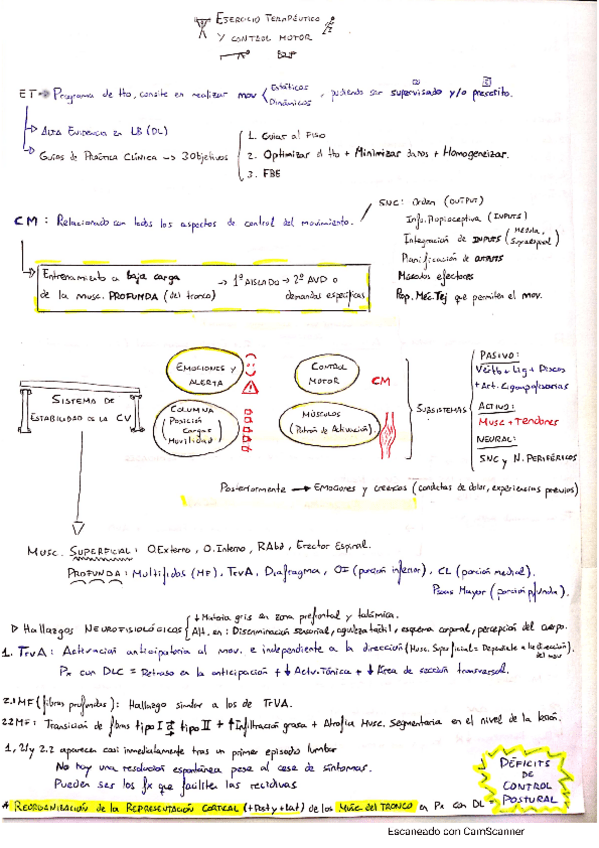 EJERCICIO TERAPÉUTICO
Y CONTROL MOTOR
ET → Programa de tto, consite en realizar mov < Estáticos
Dinámicos , pudiendo ser supervisado y/o prescrito.
→ Alta Evidencia en LB (DL)
→ Guías de Práctica Clínica → 3 Objetivos
1. Guiar al Fisio
2. Optimizar el tto + Minimizar daños + Homogeneizar.
3. FBE
CM: Relacionado con todos los aspectos de control del movimiento.
SNC: Orden (OUTPUT)
Info. Propioceptiva (INPUTS)
Integración de INPUTS (Médula, Supraespinal)
Planificación de OUTPUTS
Músculos efectores
Prop. Mec. Tej que permiten el mov.
Entrenamiento a baja carga → 1º AISLADO → 2º AVD o
de la musc. PROFUNDA (del tronco) demandas específicas.
SISTEMA DE
ESTABILIDAD DE LA CV
EMOCIONES Y
ALERTA
COLUMNA
Posición
Cargas
Movilidad
CONTROL
MOTOR
CM
MÚSCULOS
(Patrón de Activación).
SUBSISTEMAS
PASIVO:
Vértb + Lig + Discos
+ Art. Cigoapofisarias
ACTIVO:
Musc + Tendones
NEURAL:
SNC y N. PERIFÉRICOS
Posteriormente → Emociones y creencias (conductas de dolor, experiencias previas)
MUSC. SUPERFICIAL: O.Externo, O.Interno, RAbd, Erector Espinal.
PROFUNDA: Multífidos (MF), TrvA, Diafragma, OI (porción inferior), CL (porción medial).
Psoas Mayor (porción profunda).
▷ Hallazgos NEUROFISIOLÓGICOS
↓ Materia gris en zona prefrontal y talámica.
Alt. en: Discriminación sensorial, agudeza táctil, esquema corporal, percepción del cuerpo.
1. TrvA: Activación anticipatoria al mov. e independiente a la dirección (Musc. Superficial = Dependiente a la dirección del mov
Px con DLC = Retraso en la anticipación + ↓ Activ. Tónica + ↓ Área de sección transversal.
2.1 MF (fibras profundas): Hallazgo similar a los de TrVA.
2.2 MF: Transición de fibras tipo I ⇄ tipo II + ↑ Infiltración grasa + Atrofia Musc. Segmentaria en el nivel de la lesión.
1, 2.1 y 2.2 aparecen casi inmediatamente tras un primer episodio lumbar
No hay una resolución espontánea pese al cese de síntomas.
Pueden ser los fx que faciliten las recidivas
DÉFICITS
DE
CONTROL
POSTURAL
* REORGANIZACIÓN de la REPRESENTACIÓN CORTICAL (+Post y +Lat) de los MUSC. DEL TRONCO en Px con DL
Escaneado con CamScanner